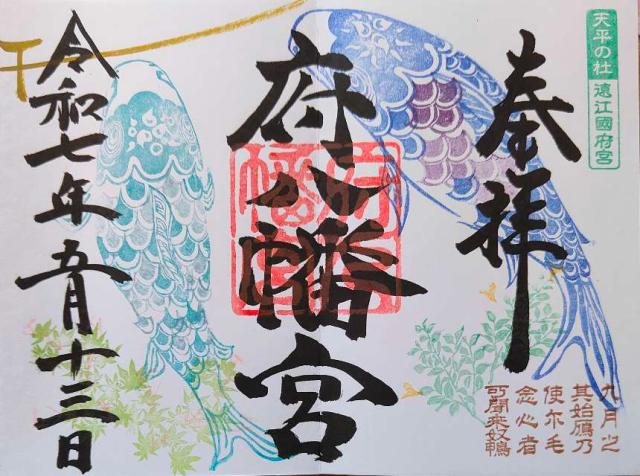 天平の杜 遠江國府宮
奉拝
府八幡宮
令和七年五月十三日
九月之
其始鴈乃
使尓毛
念心者
所聞来奴鴨